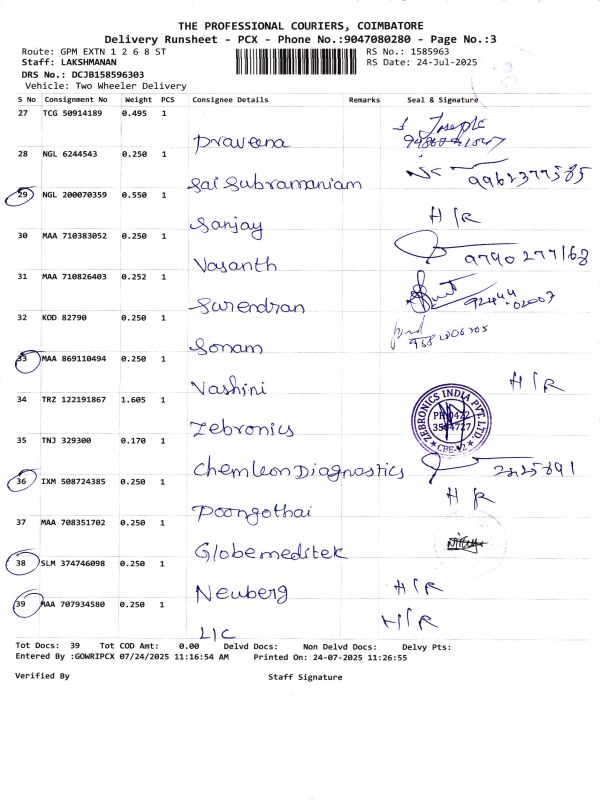 THE PROFESSIONAL COURIERS, COIMBATORE
Delivery Runsheet - PCX - Phone No.:9047080280 - Page No.:3
Route: GPM EXTN 1 2 6 8 ST RS No.: 1585963
Staff: LAKSHMANAN RS Date: 24-Jul-2025
DRS No.: DCJB158596303
Vehicle: Two Wheeler Delivery
S No Consignment No Weight PCS Consignee Details Remarks Seal & Signature
27 TCG 50914189 0.495 1
Praveena Joseph
28 NGL 6244543 0.250 1
Sai Subramaniam 9962377585
29 NGL 200070359 0.550 1
Sanjay H/R
30 MAA 710383052 0.250 1
Vasanth 9790277168
31 MAA 710826403 0.252 1
Surendran
32 KOD 82790 0.250 1
Sonam
33 MAA 869110494 0.250 1
Vashini H/R
34 TRZ 122191867 1.605 1
Zebronics ZEBRONICS INDIA PVT. LTD.
35 TNJ 329300 0.170 1
Chemleon Diagnostics
36 IXM 508724385 0.250 1
Poongothai H R
37 MAA 708351702 0.250 1
Globemeditek
38 SLM 374746098 0.250 1
Neuberg H/R
39 MAA 707934580 0.250 1
LIC H/R
Tot Docs: 39 Tot COD Amt: 0.00 Delvd Docs: Non Delvd Docs: Delvy Pts:
Entered By :GOWRIPCX 07/24/2025 11:16:54 AM Printed On: 24-07-2025 11:26:55
Verified By Staff Signature